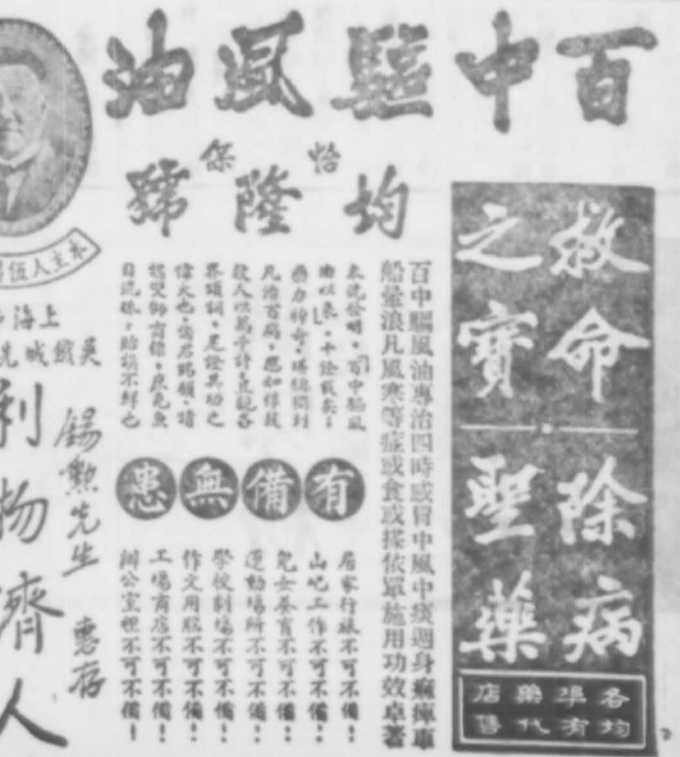 百中驅風油
怡保
均隆號
救命
之寶
除病
聖藥
各埠藥店
均有代售
百中驅風油專治四時感冒中風中痰遍身癱瘓車
船暈浪凡風寒等症或食或搽依單施用功效卓著
百中驅風
油以來，十餘載矣！
藥力神奇，堪稱獨到
凡治百病，應如桴鼓
救人以萬千計，
界頌詞，足證其功之
偉大也，倘若賜顧，請
認雙獅商標，庶免魚
目混珠，貽誤不鮮也
有備無患
居家行旅不可不備！
山芭工作不可不備！
兒女養育不可不備！
運動場所不可不備！
學校劇場不可不備！
作文用腦不可不備！
工場商店不可不備！
辦公室裡不可不備！
本主人伍
上海
吳鐵城先
錫勲先生 惠存
利物濟人